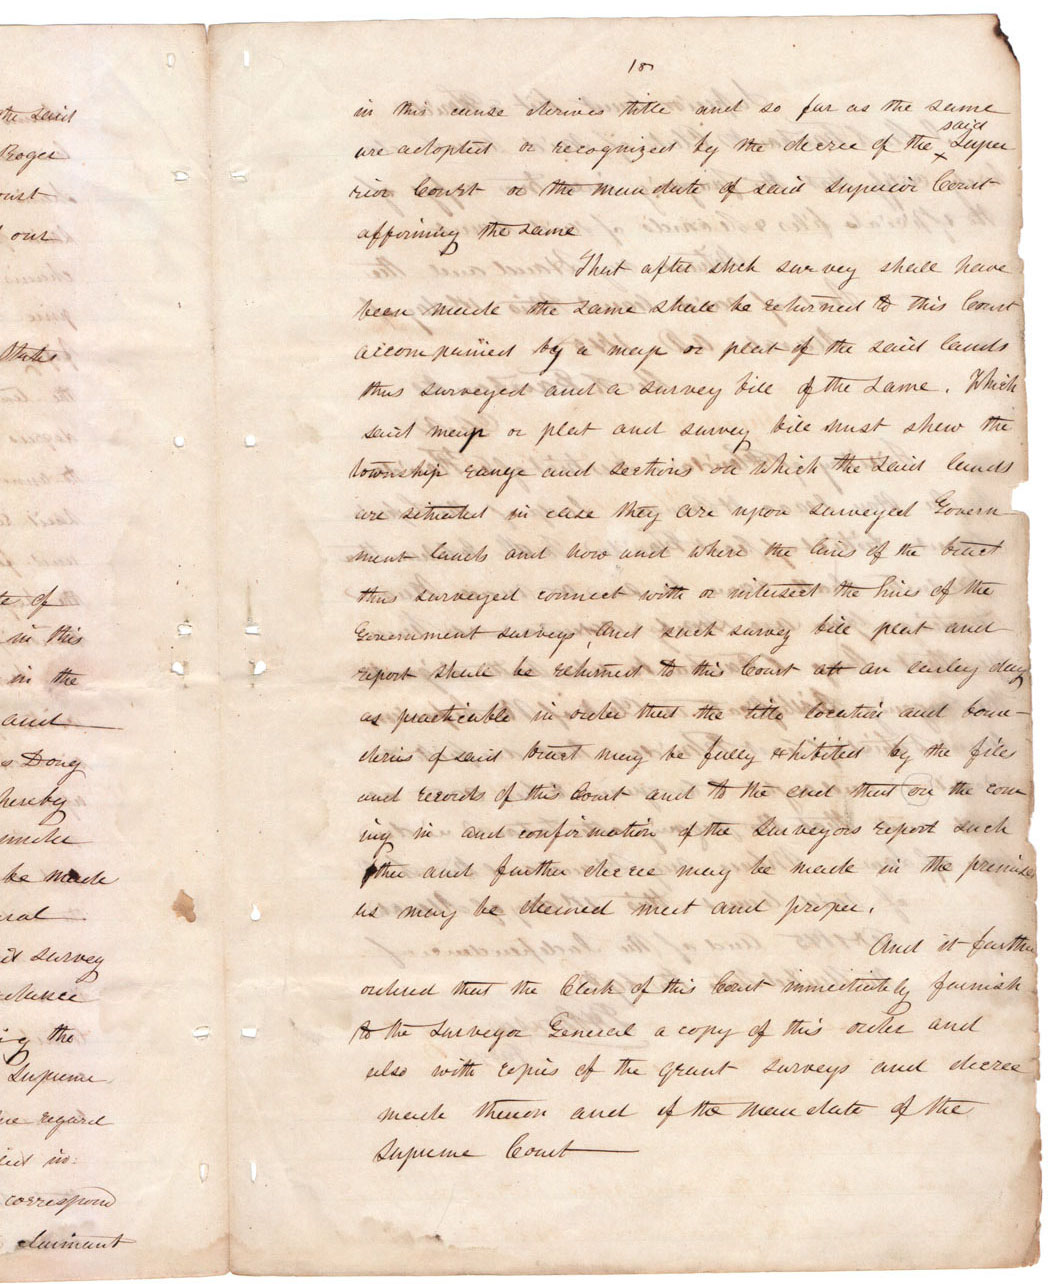 the said
Roger
Court
our
States
te of
in this
in the
and
s Doug
hereby
make
be made
ral
survey
the
Supreme
regard
in
correspond
claimant
18
in this cause derives title and so far as the same
said
are adopted or recognized by the decree of the x Supe
rior Court or the mandate of said Superior Court
affirming the same
That after such survey shall have
been made the same shall be returned to this Court
accompanied by a map or plat of the said lands
thus surveyed and a survey bill of the same. Which
said map or plat and survey bill must shew the
township range and sections on which the said lands
are situated in case they are upon surveyed Govern-
ment lands and how and where the lines of the tract
thus surveyed connect with or intersect the lines of the
Government surveys, And such survey bill plat and
report shall be returned to this Court att an earley day
as practicable in order that the title location and boun-
deries of said tract may be fully exhibited by the files
and records of this Court and to the end that on the com
ing in and confirmation of the Surveyors report such
other and further decree may be made in the premises
as may be deemed meet and proper.
And it further
ordered that the Clerk of this Court immediately furnish
to the Surveyor General a copy of this order and
also with copies of the grant surveys and decree
made thereon and of the mandate of the
Supreme Court